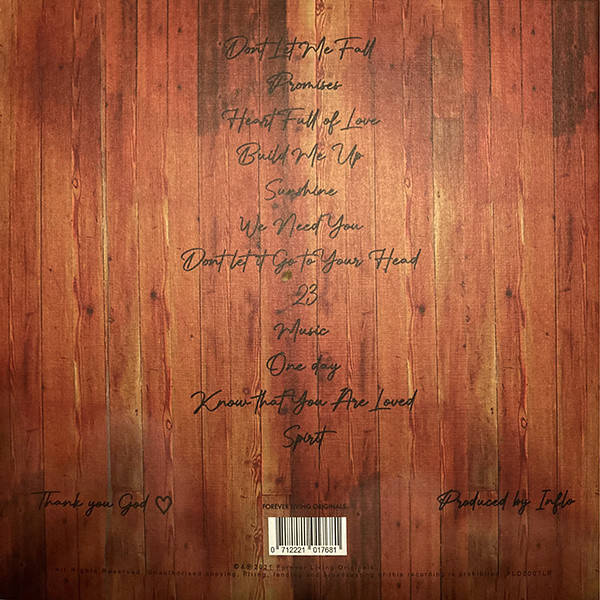 Dont Let Me Fall
Promises
Heart Full of Love
Build Me Up
Sunshine
We Need You
Dont let it Go to Your Head
23
Music
One day
Know that You Are Loved
Spirit
Thank you God ♡
Produced by Inflo
FOREVER LIVING ORIGINALS.
0 712221 017681
©&℗ 2021 Forever Living Originals.
All Rights Reserved. Unauthorised copying, hiring, lending and broadcasting of this recording is prohibited.